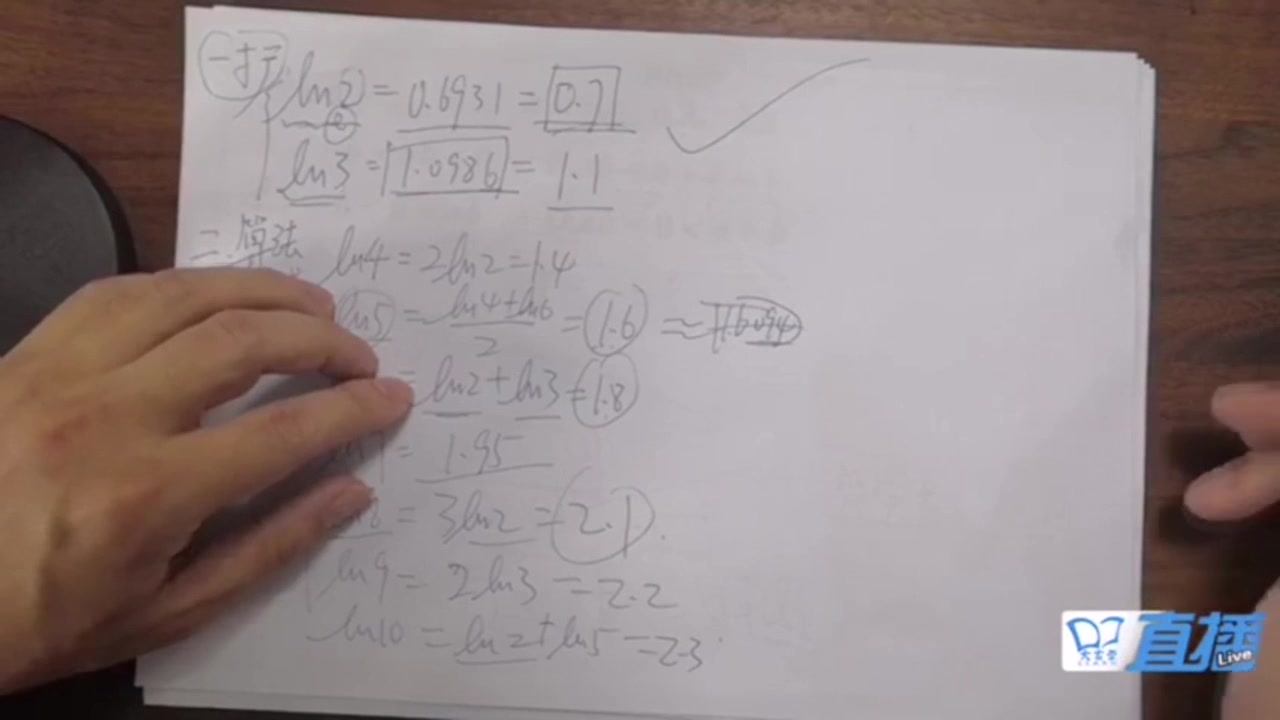 ln2 = 0.6931 = 0.7
②
ln3 = 1.0986 = 1.1
二. 算法
ln4 = 2ln2 = 1.4
ln5 = (ln4+ln6)/2 = 1.6 ≈ 1.6094
= ln2 + ln3 = 1.8
= 1.95
= 3ln2 = 2.1
ln9 = 2ln3 = 2.2
ln10 = ln2 + ln5 = 2.3
直播
Live